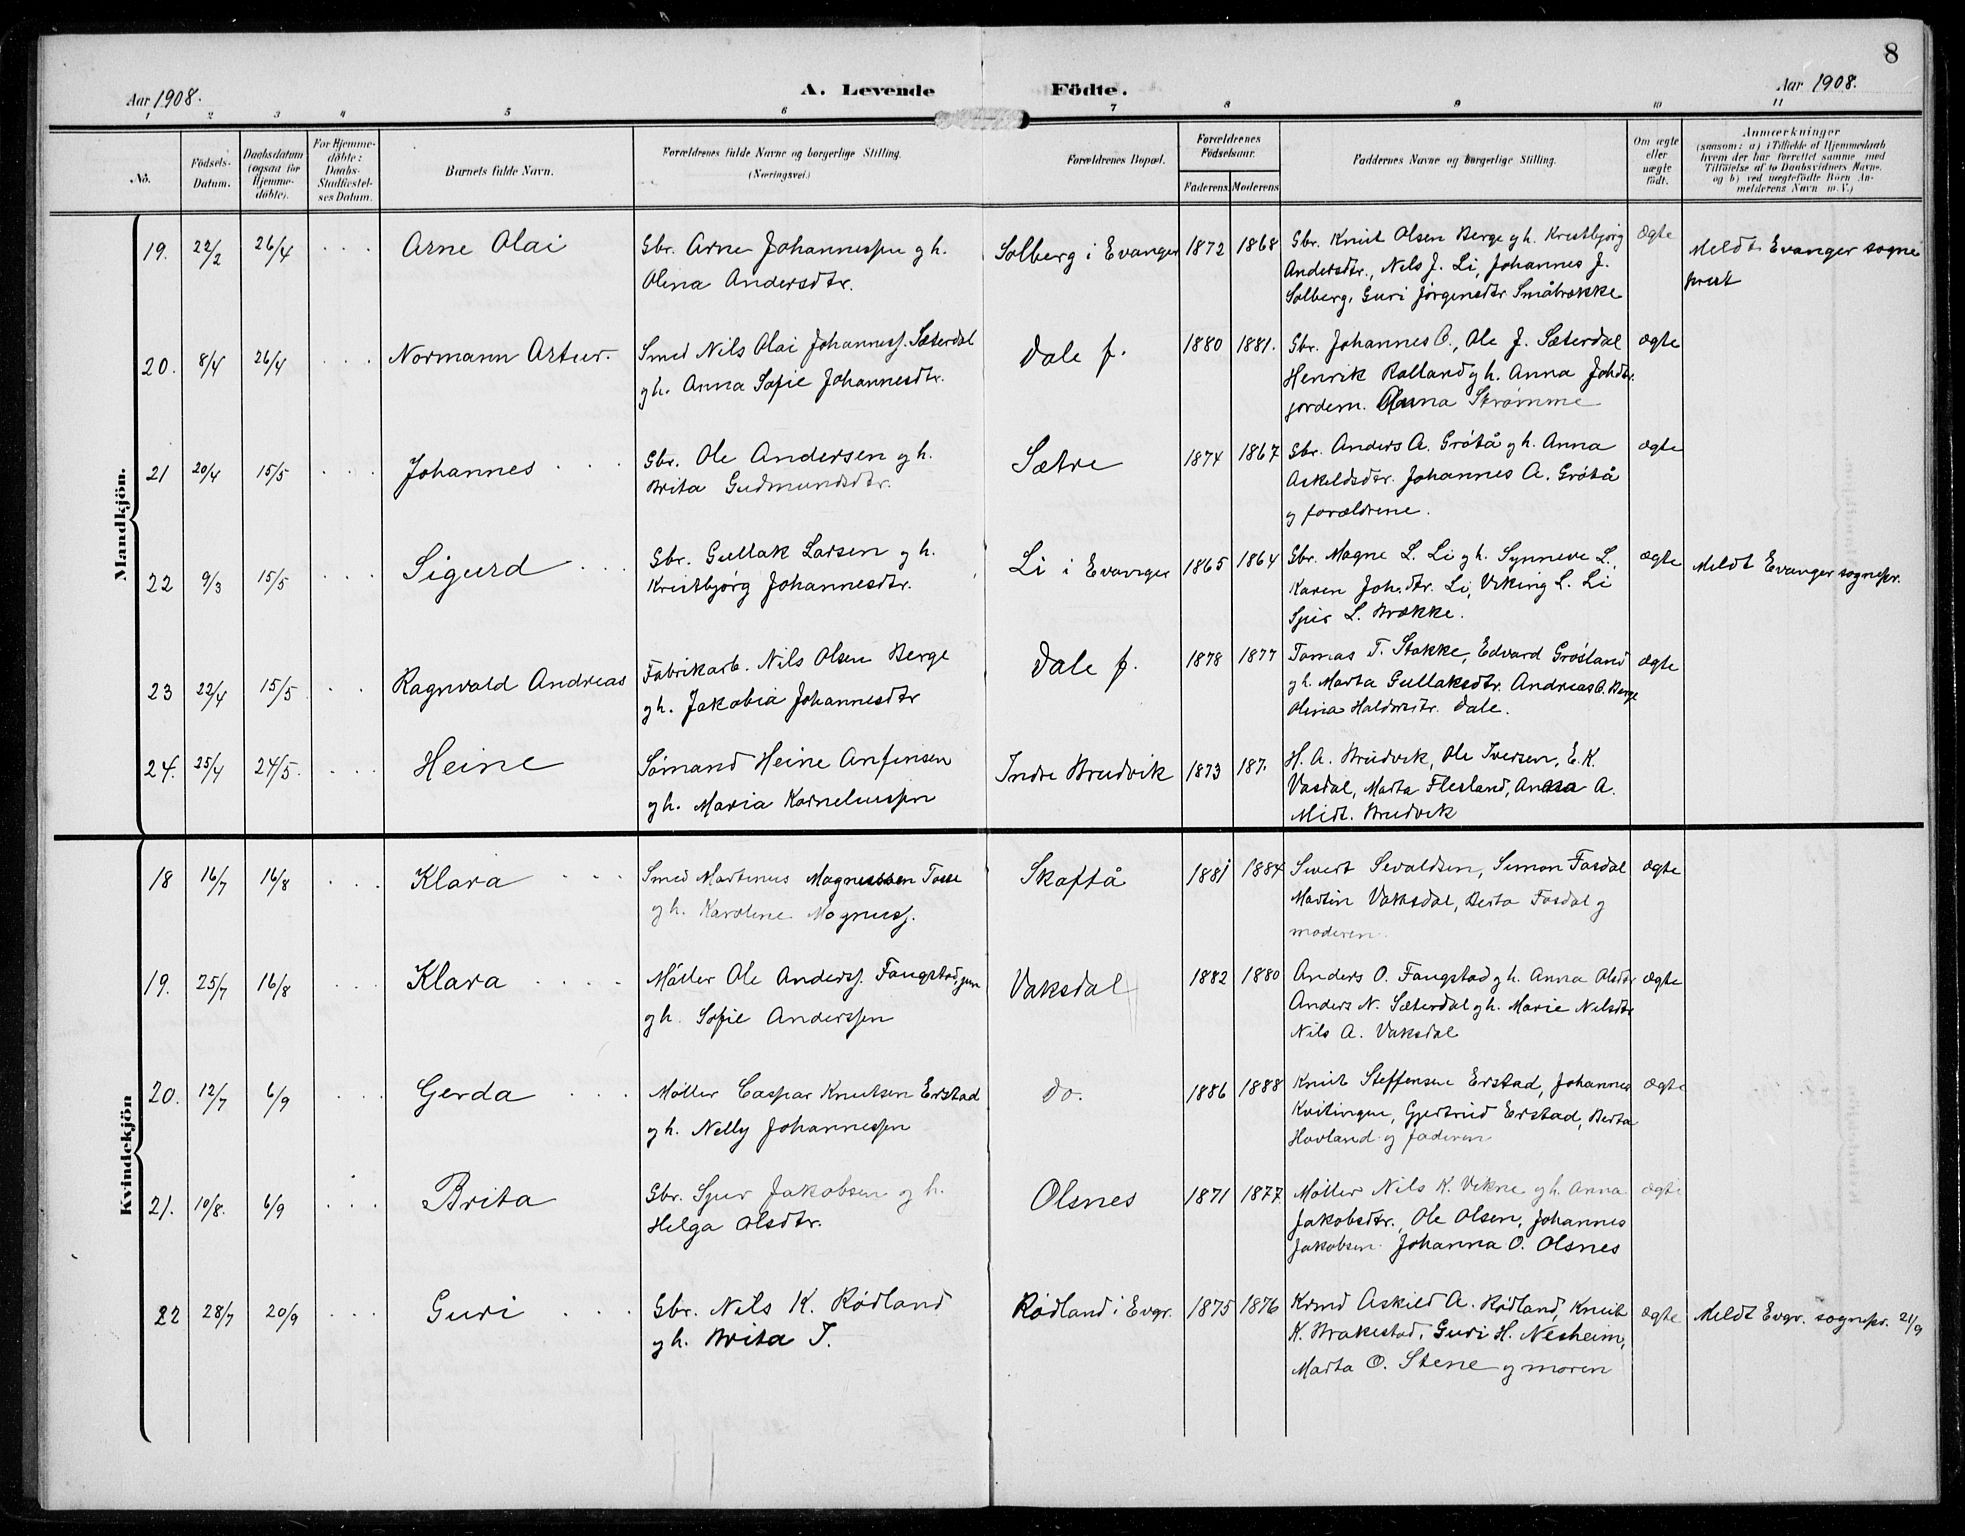 8
Aar 1908. A. Levende Födte. Aar 1908.
1 2 3 4 5 6 7 8 9 10 11
No. Födsels-Datum. Daabsdatum (ogsaa for Hjemmedöbte). For Hjemmedöbte: Daabs-Stadfæstelses Datum. Barnets fulde Navn. Forældrenes fulde Navne og borgerlige Stilling. (Næringsvei.) Forældrenes Bopæl. Forældrenes Födselsaar. Faderens. Moderens Faddernes Navne og borgerlige Stilling. Om ægte eller uægte födt. Anmærkninger (saasom: a) i Tilfælde af Hjemmedaab hvem der har forrettet samme med Tilföielse af to Daabsvidners Navne, og b) ved uægtefödte Börn Anmelderens Navn m. V.)
Mandkjön.
19. 22/2 26/4 Arne Olai Gbr. Arne Johannessen gh. Solberg i Evanger 1872 1868 Gbr. Knut Olsen Berge gh. Kristbjørg ægte Meldt Evanger sogne
Olina Andersdtr. Andersdtr., Nils J. Li, Johannes J. prest
Solberg, Guri Jörgensdtr Småbrække
20. 8/4 26/4 Normann Artur. Smed Nils Olai Johanness. Sæterdal Dale f. 1880 1881. Gbr. Johannes O., Ole J. Sæterdal ægte
gh. Anna Sofie Johannesdtr. Henrik Rolland gh. Anna Johdtr.
jordem. Anna Strømme
21 20/4 15/5 Johannes Gbr. Ole Andersen gh. Sætre 1874 1867 Gbr. Anders A. Grötå gh. Anna ægte
Brita Gudmundsdtr. Askildsdtr. Johannes A. Grötå
og forældrene.
22 9/3 15/5 Sigurd Gbr. Gullak Larsen gh. Li i Evanger 1865 1864 Gbr. Magne L. Li gh. Synneve L., ægte Meldt Evanger sognepr.
Kristbjörg Johannesdtr. Karen Joh.dtr. Li, Viking L. Li
Sjur L. Brække.
23 22/4 15/5 Ragnvald Andreas Fabrikarb. Nils Olsen Berge Dale f. 1878 1877 Tomas T. Stokke, Edvard Grösland ægte
gh. Jakobia Johannesdtr gh. Marta Gullaksdtr. Andreas O. Berge
Olina Haldorsdtr. Dale.
24. 25/4 24/5. Heine Sömand Heine Anfinsen Indre Brudvik 1873 187. H. A. Brudvik, Ole Iversen, E. K.
gh. Maria Korneliussen Vasdal, Marta Flesland, Anna A.
Midt. Brudvik
Kvindekjön
18 16/7 16/8 Klara Smed Martinus Magnussen Tosse Skaftå 1881 1884 Sivert Sivaldsen, Simon Fosdal ægte
gh. Karoline Magnuss. Martin Vaksdal, Berta Fosdal og
moderen.
19. 25/7 16/8 Klara Möller Ole Anderss. Fangstad, jun Vaksdal 1882 1880 Anders O. Fangstad gh. Anna Olsdtr ægte
gh. Sofie Anderssen Anders N. Sæterdal gh. Marie Nilsdtr
Nils A. Vaksdal
20. 12/7 6/9 Gerda Möller Caspar Knutsen Erstad do. 1886 1888 Knut Steffensen Erstad, Johannes ægte
gh. Nelly Johannessen Kvitingen, Gjertrud Erstad, Berta
Hovland og faderen
21. 10/8. 6/9 Brita Gbr. Sjur Jakobsen gh. Olsnes 1871 1877 Möller Nils K. Vikne gh. Anna ægte
Helga Olsdtr. Jakobsdtr., Ole Olsen, Johannes
Jakobsen. Johanna O. Olsnes
22 28/7 20/9 Guri Gbr. Nils K. Rödland Rödland i Evgr. 1875 1876 Krmd Askild A. Rödland, Knut ægte Meldt Evgr. sognepr. 21/9
gh. Brita T. K. Brakestad, Guri H. Nesheim,
Marta O. Stene og moren